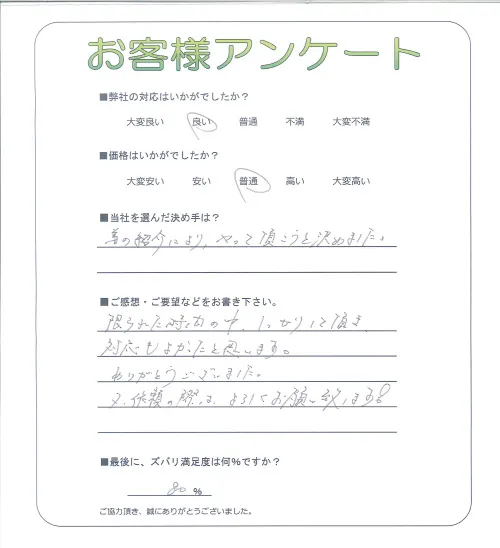 お客様アンケート
■弊社の対応はいかがでしたか？
大変良い 良い 普通 不満 大変不満
■価格はいかがでしたか？
大変安い 安い 普通 高い 大変高い
■当社を選んだ決め手は？
の紹介により、やって頂こうと決めました。
■ご感想・ご要望などをお書き下さい。
限られた時間の中、しっかりして頂き
対応もよかったと思います。
ありがとうございました。
又、依頼の際は、よろしくお願い致します。
■最後に、ズバリ満足度は何％ですか？
80 %
ご協力頂き、誠にありがとうございました。